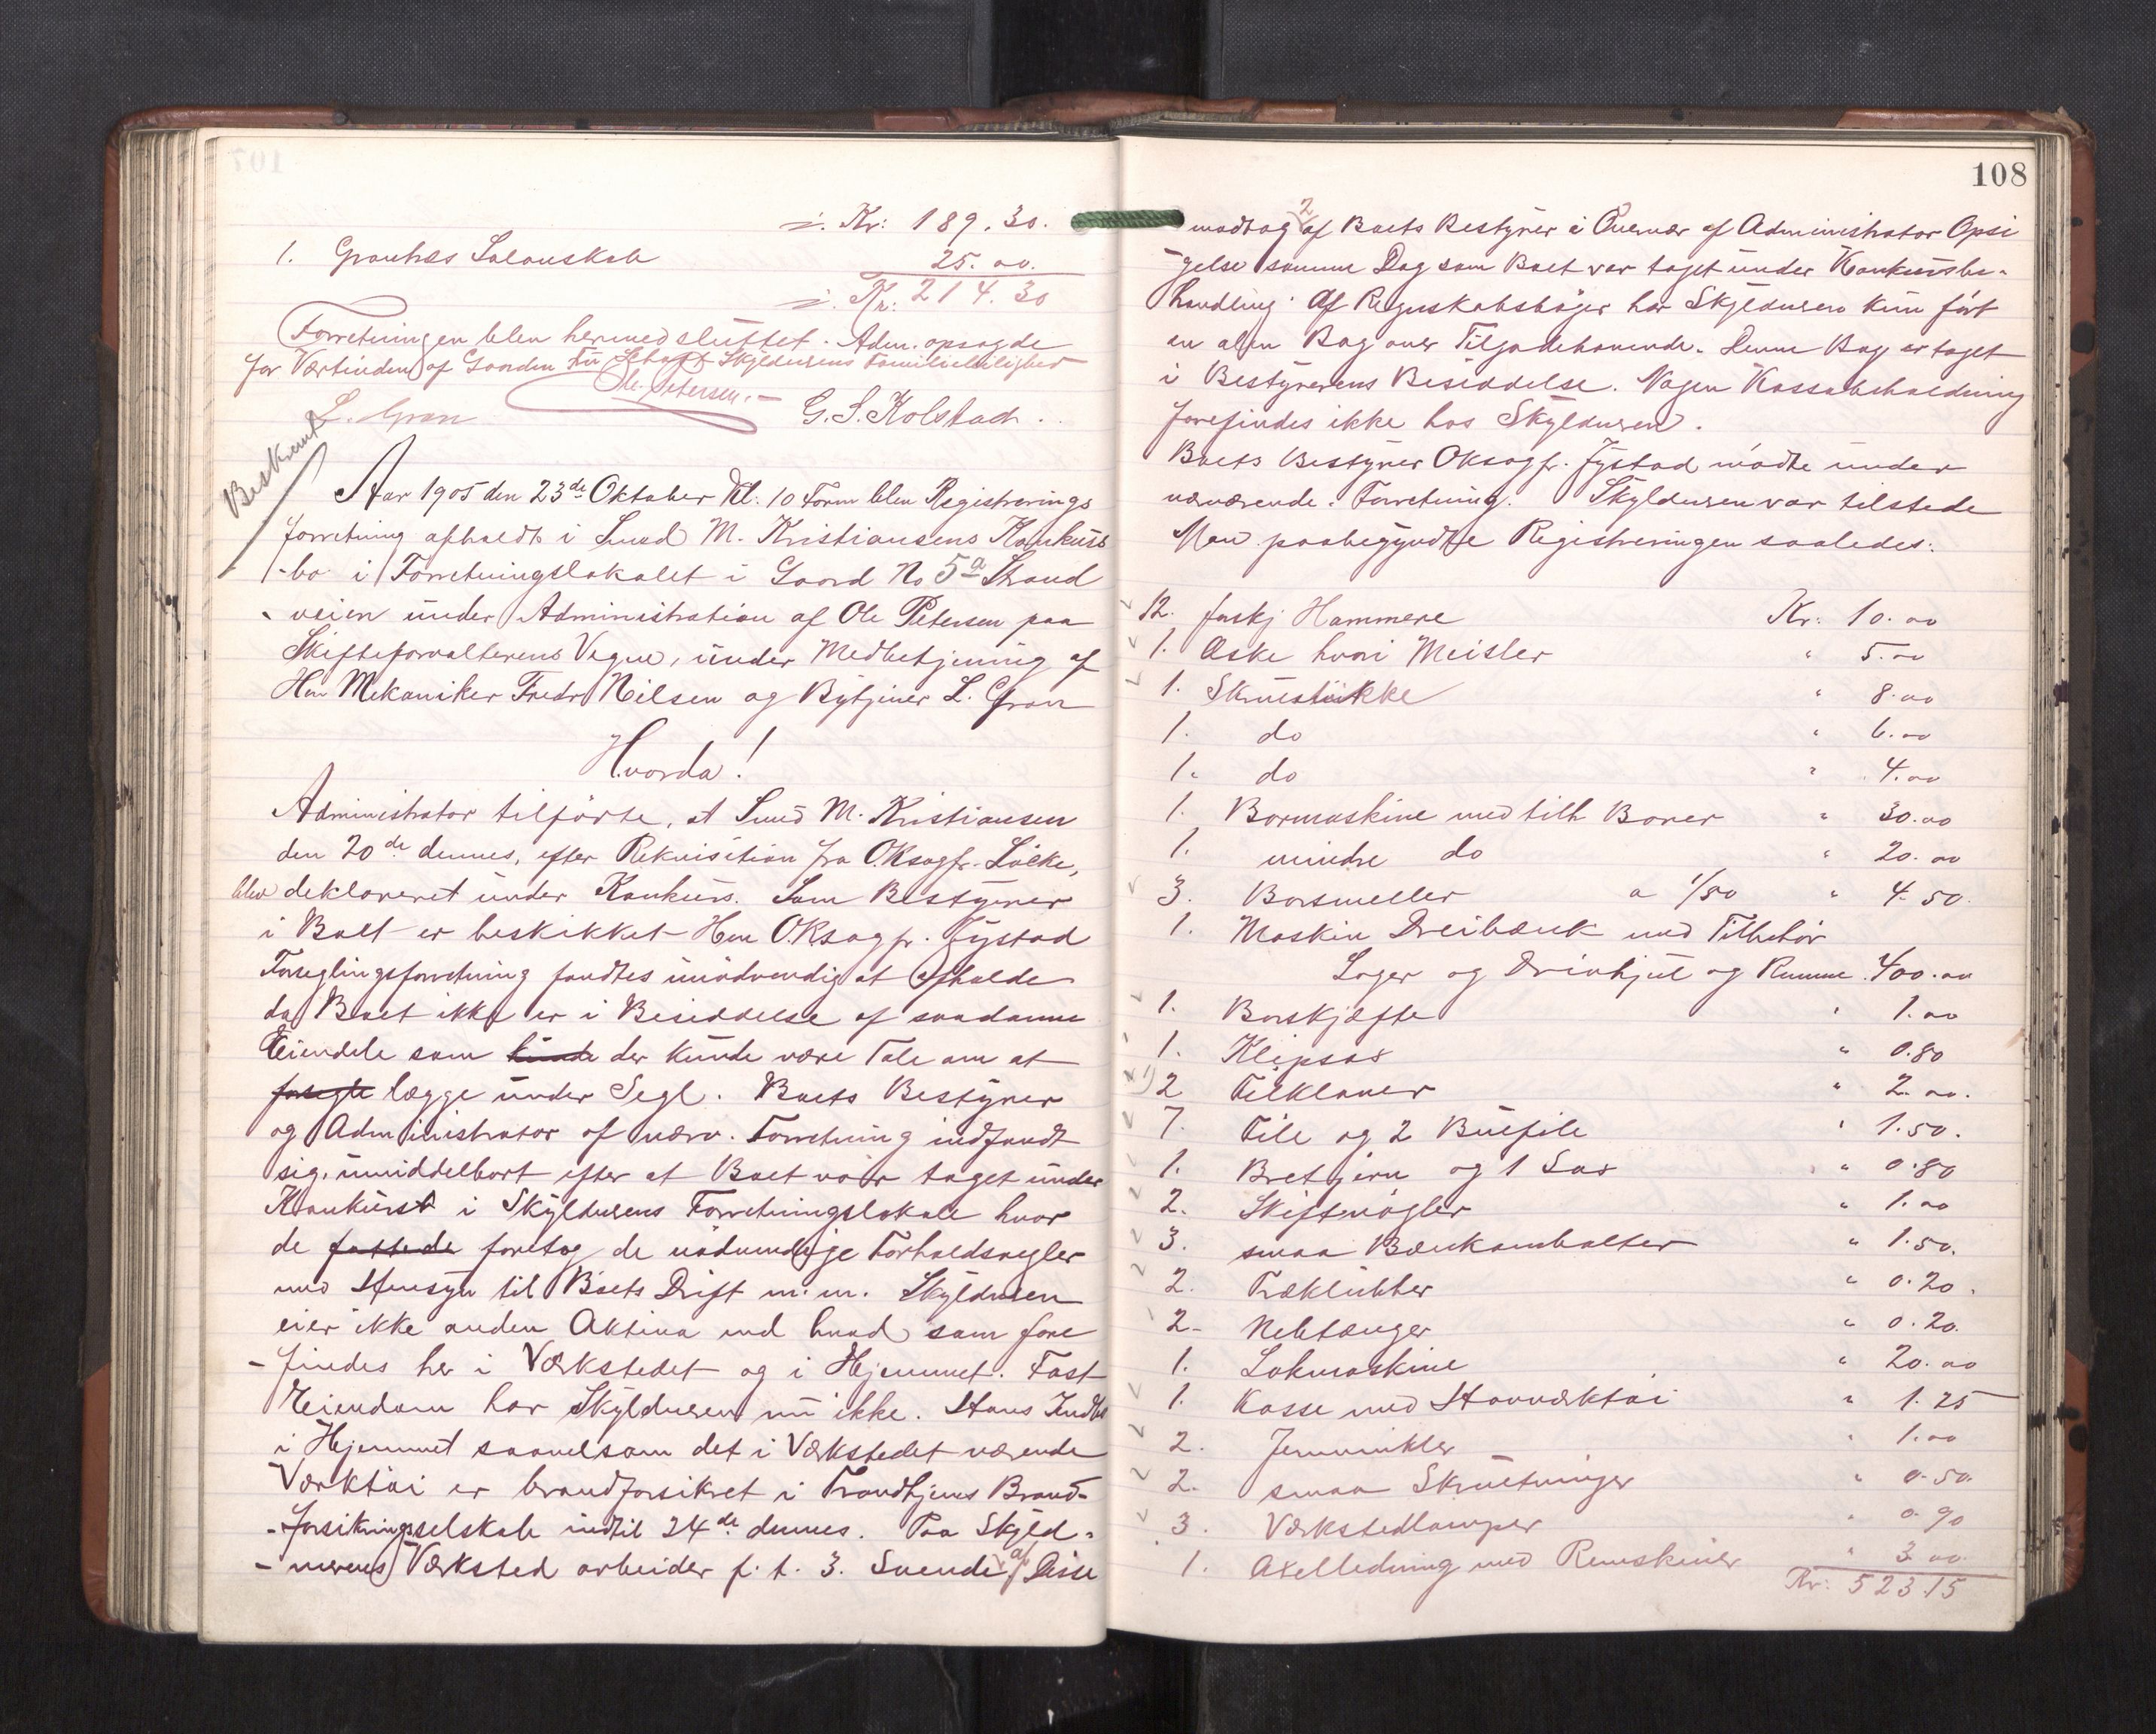 ÷. Kr: 189.30.
1. Grantræs Salonskab 25.00.
÷. Kr: 214.30
Forretningen blev hermed sluttet. Adm. opsagde
for Værtinden af Gaarden Skyldnerens Familieleilighed
Ole Petersen.
L. Gran G. S. Kolstad.
Beskrevet
Aar 1905 den 23de Oktober Kl. 10 Form blev Registrerings
forretning afholdt i Smed M. Kristiansens Konkurs
-bo i Forretningslokalet i Gaard No 5a Strand
-veien under Administration af Ole Petersen paa
Skifteforvalterens Vegne, under Medbetjening af
Hrr Mekaniker Fredr Nilsen og Bytjener L. Gran
Hvorda!
Administrator tilførte, at Smed M. Kristiansen
den 20de dennes, efter Rekvisition fra O.Rsagf. Löcke,
blev deklareret under Konkurs. Som Bestyrer
i Boet er beskikket Hrr O.Rsagf. Fystad
Forseglingsforretning fandtes unödvendig at afholde
da Boet ikke er i Besiddelse af saadanne
Eiendele som kunde der kunde være Tale om at
forsegle lægge under Segl. Boets Bestyrer
og Administrator af nærv. Forretning indfandt
sig umiddelbart efter at Boet var taget under
Konkurs i Skyldnerens Forretningslokale hvor
de fattede foretog de nödvendige Forholdsregler
med Hensyn til Boets Drift m.m. Skyldneren
eier ikke anden Aktiva end hvad som fore
-findes her i Værkstedet og i Hjemmet. Fast
Eiendom har Skyldneren nu ikke. Hans Indbo
i Hjemmet saavelsom det i Værkstedet værende
Værktöi er brandforsikret i Trondhjems Brand-
-forsikringsselskab indtil 24de dennes. Paa Skyld-
-nerens Værksted arbeider p.t. 3. Svende. Af Disse
108
modtog 2 af Boets Bestyrer i Overvær af Administrator Opsi
gelse samme Dag som Boet var taget under Konkursbe-
handling. Af Regnskabsböger har Skyldneren kun fört
en alm Bog over Tilgodehavende. Denne Bog er taget
i Bestyrerens Besiddelse. Nogen Kassabeholdning
forefindes ikke hos Skyldneren.
Boets Bestyrer O.Rsagf. Fystad mödte under
nærværende Forretning. Skyldneren var tilstede
Man paabegyndte Registreringen saaledes:
12. forskj Hammere Kr: 10.00
1. Æske hvori Meisler " 5.00
1. Skruestukke " 8.00
1. do " 6.00
1. do " 4.00
1. Bormaskine med tilh Borer " 30.00
1. mindre do " 20.00
3. Borsmeller a 1/50 " 4.50.
1. Maskin Dreibænk med Tilbehör
Lager og Drivhjul og Remme 400.00
1. Borskjæfte " 1.00
1. Klipsax " 0.80
2 Filklover " 2.00.
7. File og 2 Buefile " 1.50.
1. Bretjern og 1 Sax " 0.80
2. Skiftnögler " 1.00
3. smaa Bænkambolter " 1.50.
2. Træklubber " 0.20.
2- Nebtænger " 0.20.
1. Lokmaskine " 20.00
1. Kasse med Haandværktöi " 1.25
2. Jernvinkler " 1.00
2. smaa Skruetvinger " 0.50.
3. Værkstedlamper " 0.90
1. Axelledning med Remskiver " 3.00.
Kr: 523.15